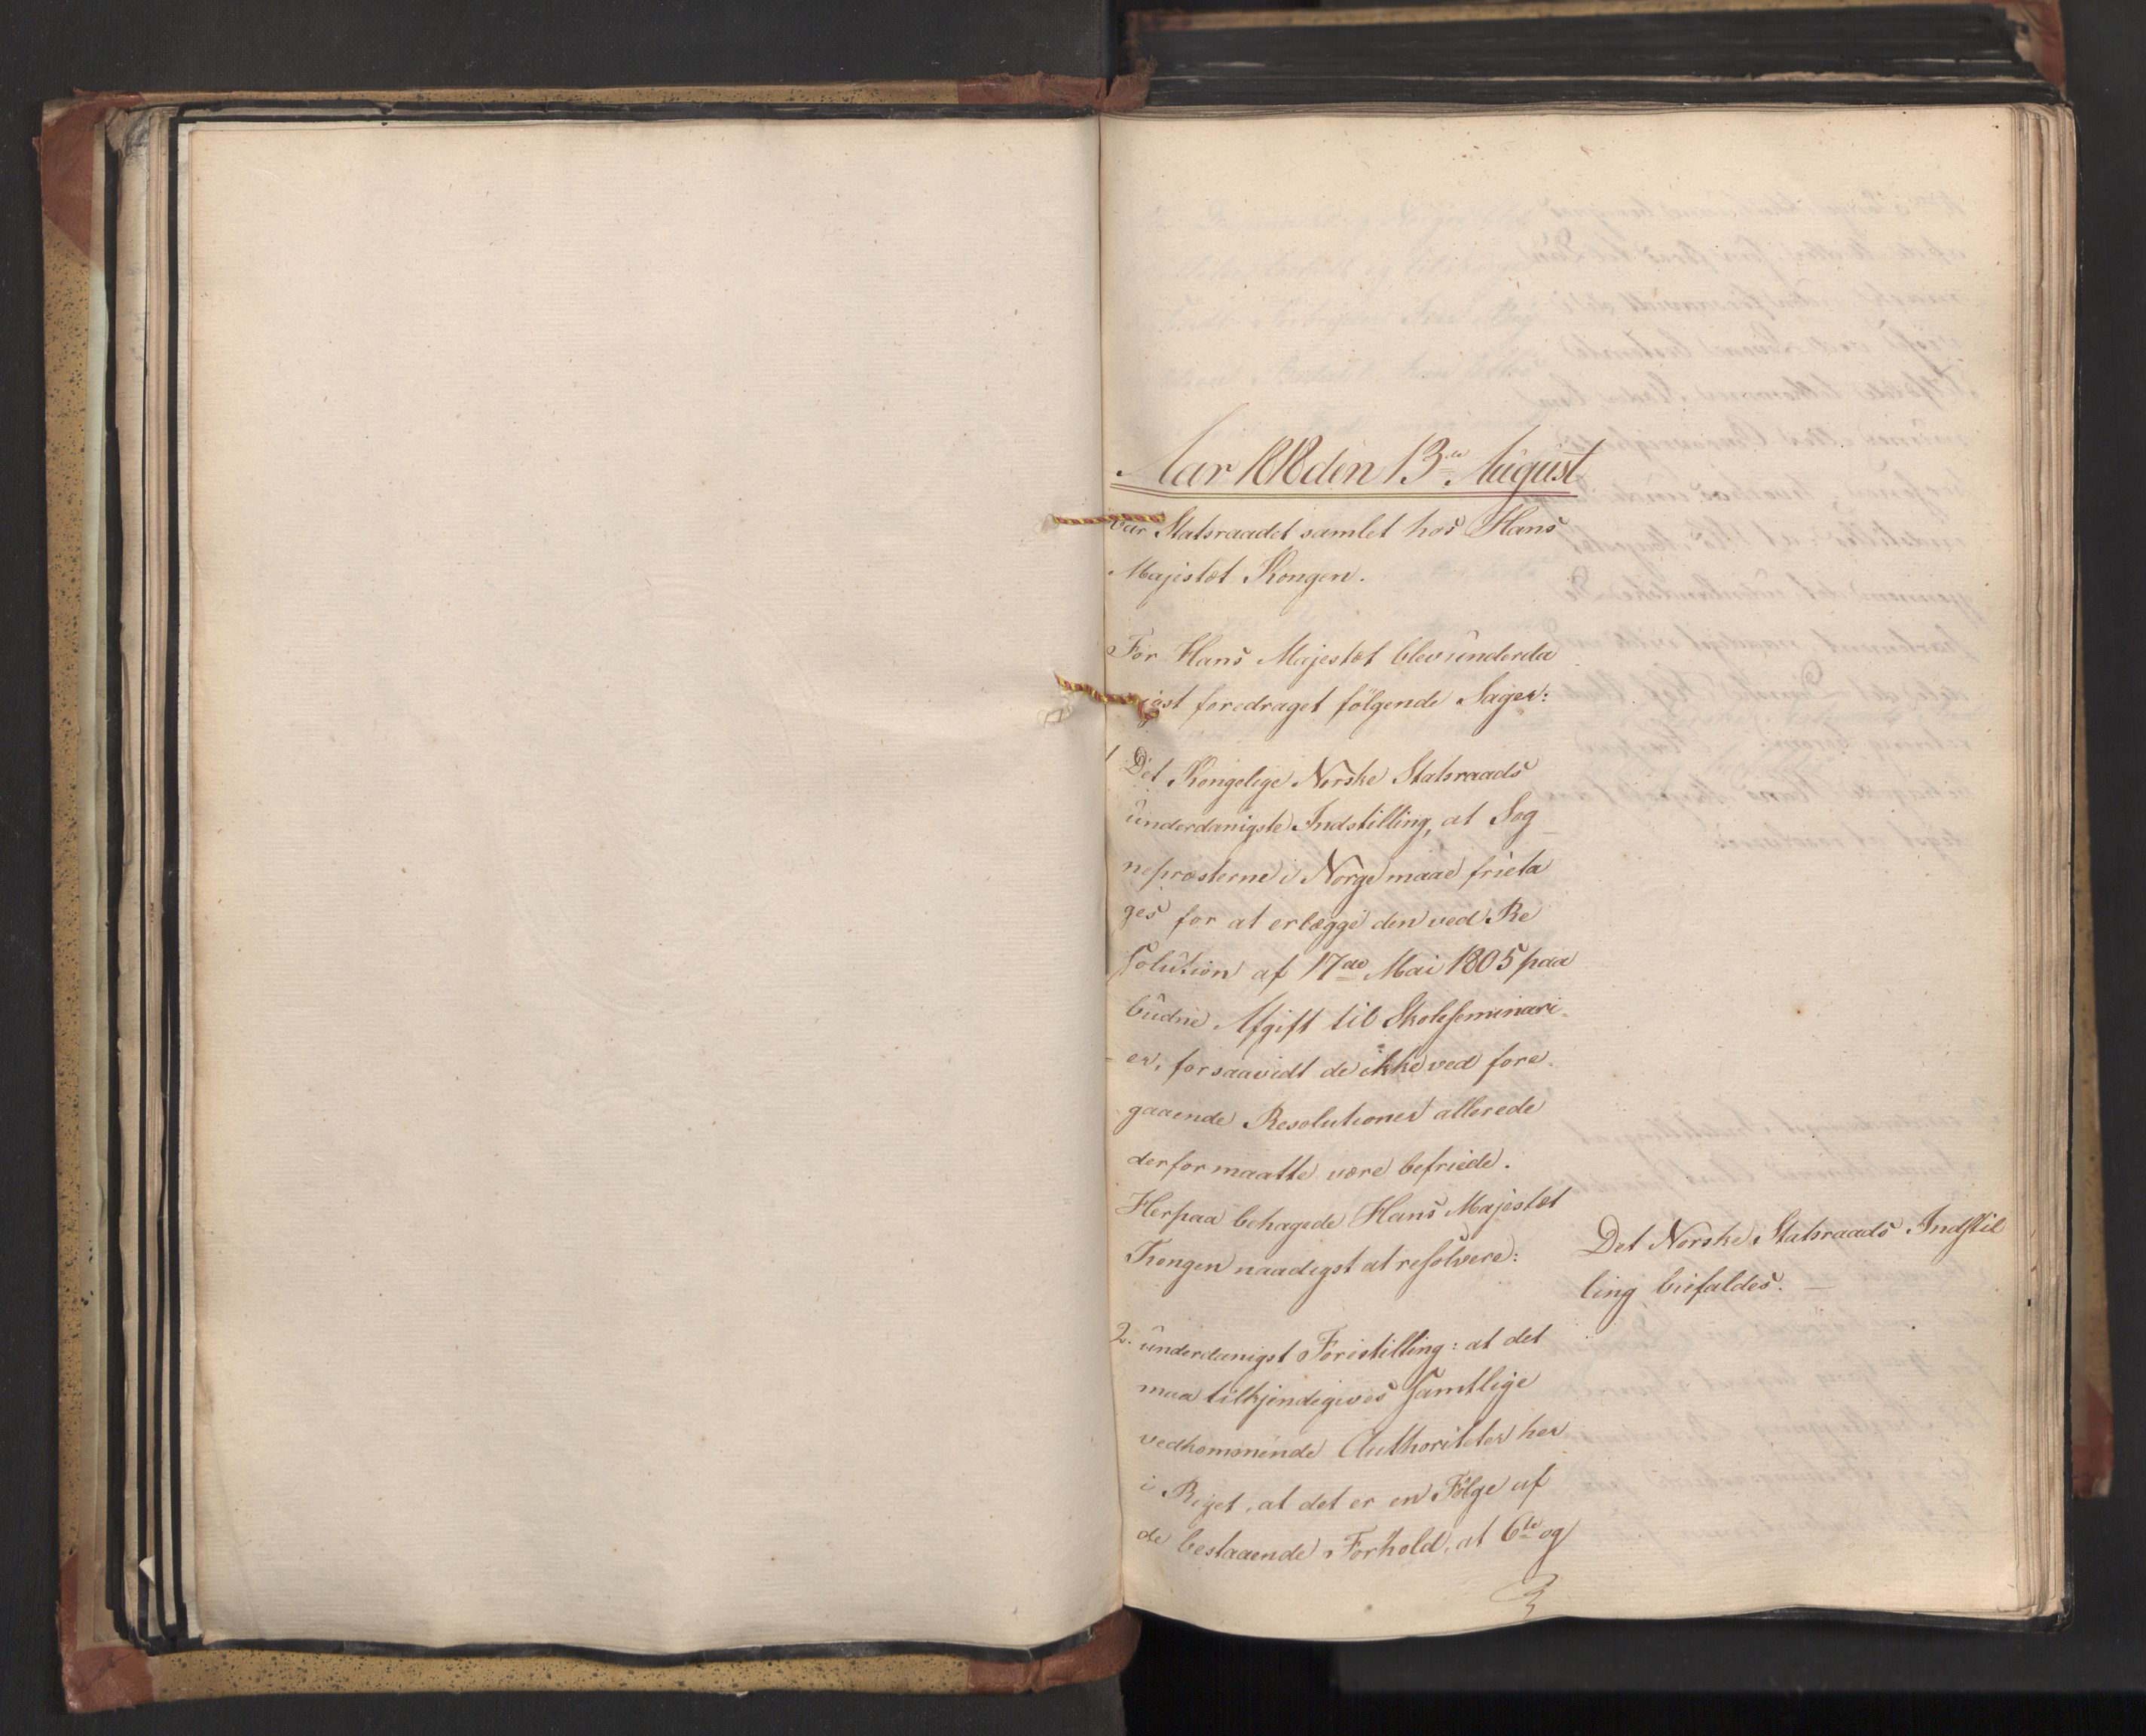 Aar 1818 den 13de August
var Statsraadet samlet hos Hans
Majestæt Kongen.
For Hans Majestæt blev underda
nigst foredraget følgende Sager:
1 Det Kongelige Norske Statsraads
underdanigste Indstilling, at Sog
nepræsterne i Norge maae frieta
ges for at erlægge den ved Re
solution af 17de Mai 1805 paa
budne Afgift til Skoleseminari
er, forsaavidt de ikke ved fore
gaaende Resolutioner allerede
derfor maatte være befriede.
Herpaa behagede Hans Majestæt
Kongen naadigst at resolvere:
Det Norske Statsraads Indstil
ling biefaldes. –
2. underdanigst Forestilling: at det
maa tilkjendegives samtlige
vedkommende Authoriteter her
i Riget, at det er en Følge af
de bestaaende Forhold, at 6te og